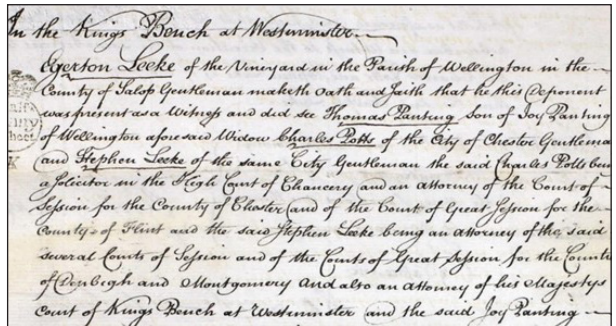 In the Kings Bench at Westminster
Egerton Leeke of the Vineyard in the Parish of Wellington in the
County of Salop Gentleman maketh Oath and saith that he this Deponent
was present as a Witness and did see Thomas Panting Son of Joy Panting
of Wellington aforesaid Widow Charles Potts of the City of Chester Gentleman
and Stephen Leeke of the same City Gentleman the said Charles Potts bein
a Solicitor in the High Court of Chancery and an attorney of the Court of
Session for the County of Chester and of the Court of Great Session for the
County of Flint and the said Stephen Leeke being an attorney of the said
several Courts of Session and of the Courts of Great Session for the Counti
of Denbigh and Montgomery and also an attorney of his Majestys
Court of Kings Bench at Westminster and the said Joy Panting